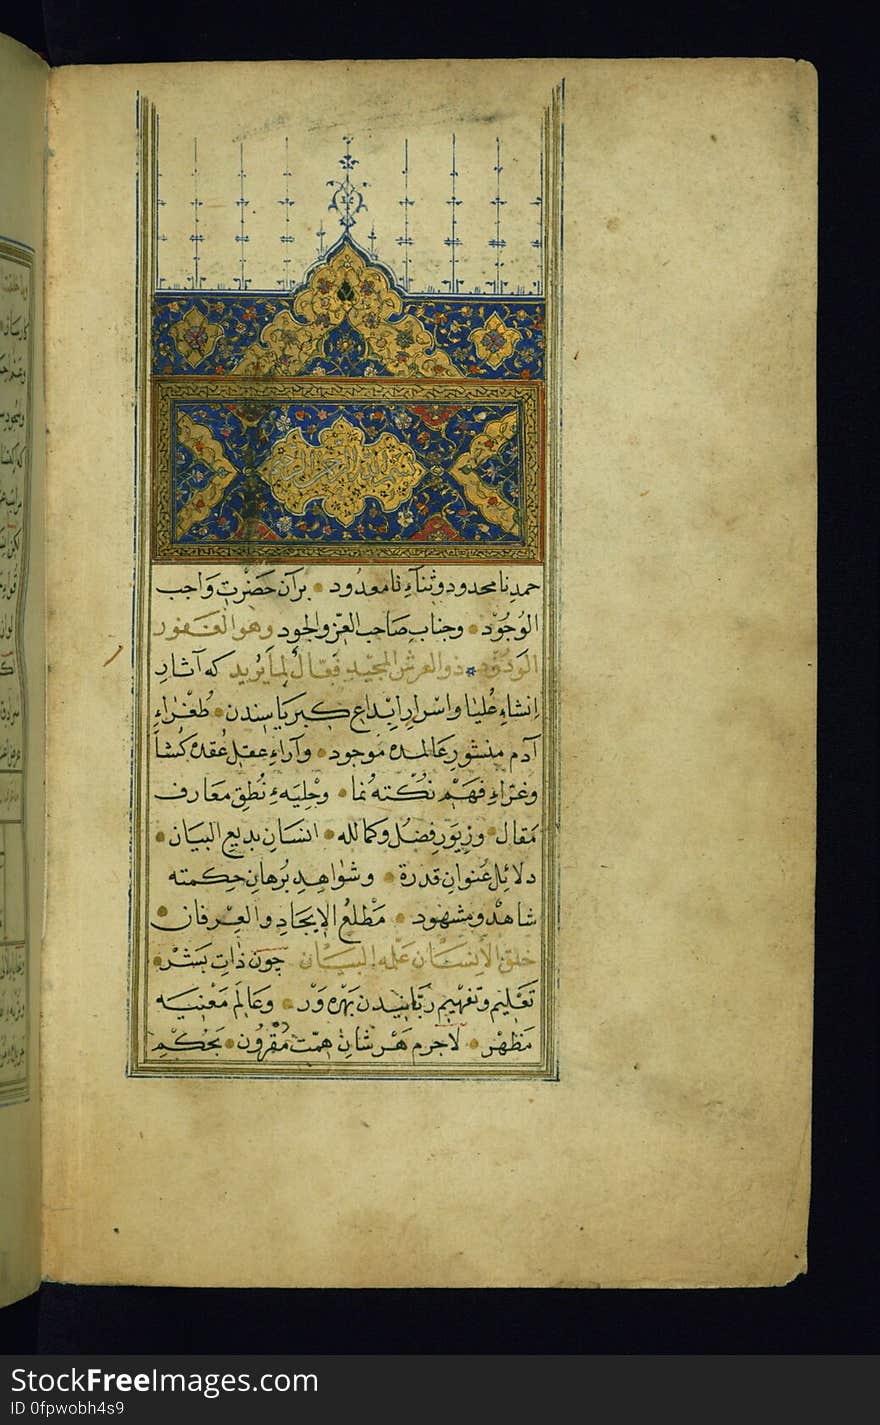 بسم الله الرحمن الرحيم
حمد نا محدود و ثناء نا معدود برآن حضرت واجب
الوجود وجناب صاحب العز والجود وهو الغفور
الودود ذو العرش المجيد فعال لما يريد كه آثار
انشاء عليا واسرار ابداع كبرياسندن طغراء
آدم منشور عالمده موجود وآراء عقل عقده كشا
وغراء فهم نكته نما وحليهء نطق معارف
مقال وزيور فضل وكمالله انسان بديع البيان
دلائل عنوان قدرة وشواهد برهان حكمته
شاهد ومشهود مطلع الايجاد والعرفان
خلق الانسان علمه البيان چون ذات بشر
تعليم وتفهيم ربانيدن بهره ور وعالم معنيه
مظهر لاجرم هر شان همت مقرون بحكم
StockFreeImages.com
ID 0fpwobh4s9